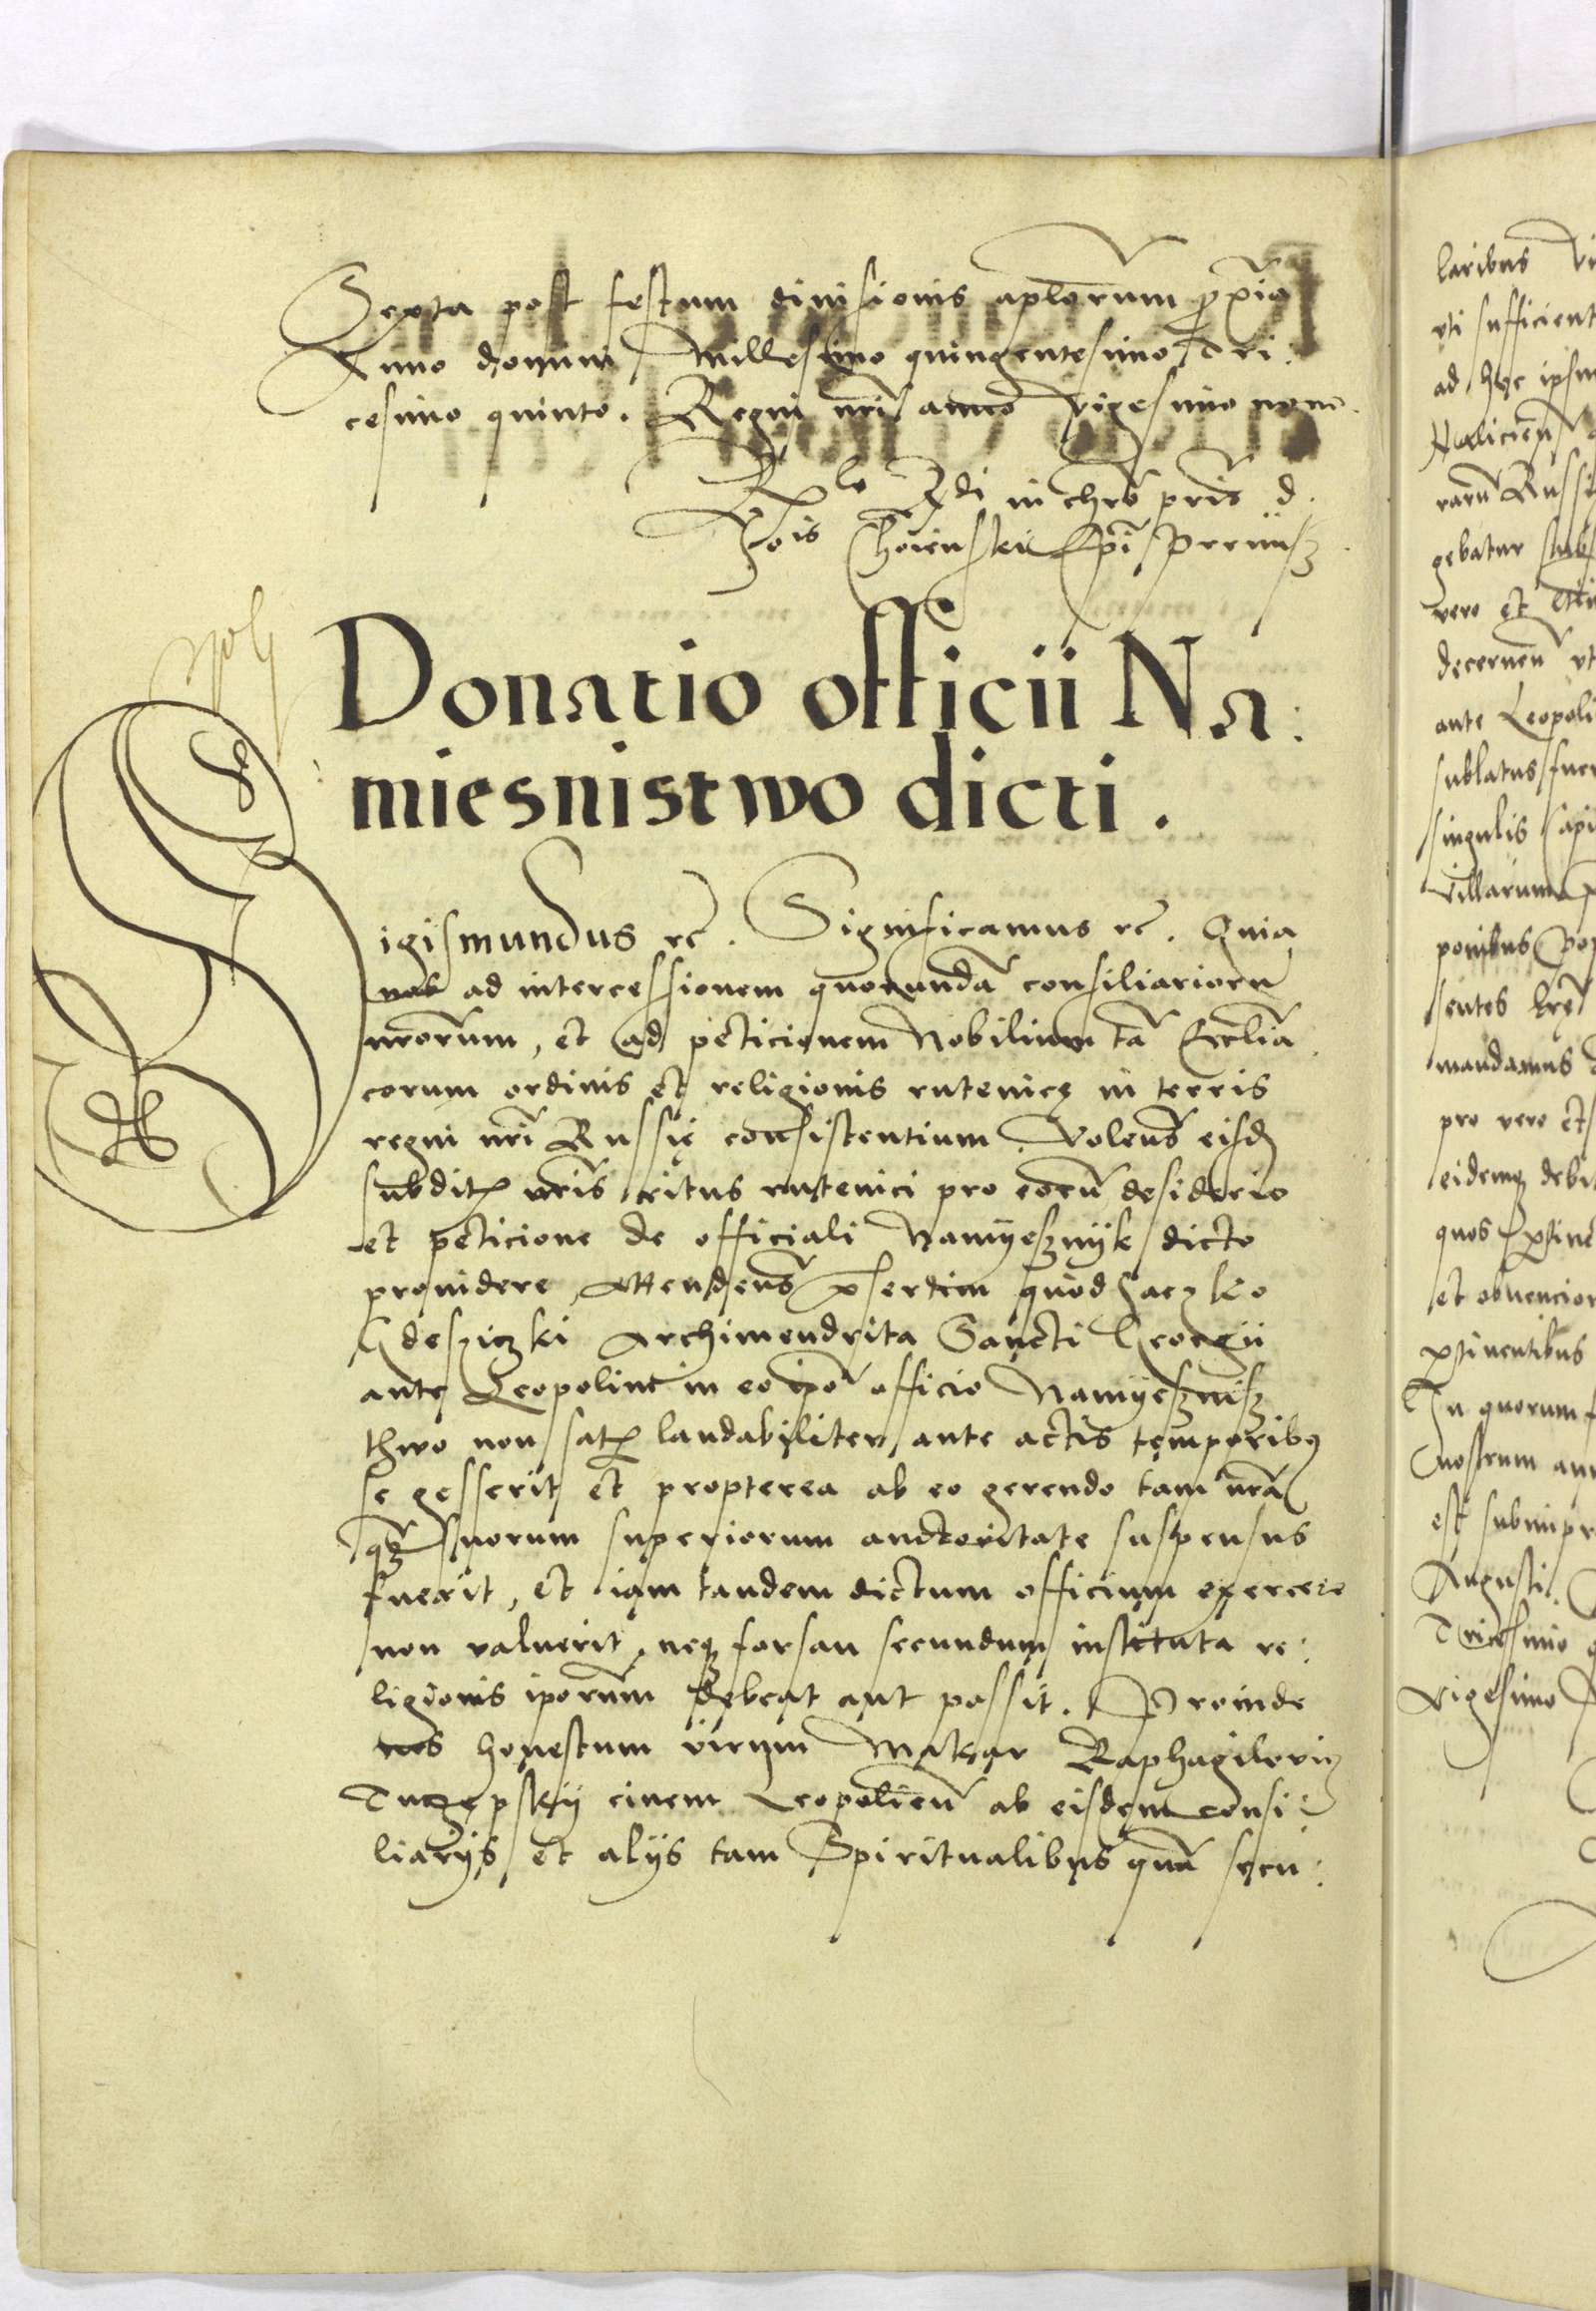 Sexta post festum divisionis aplorum proxia
Anno domini Millesimo quingentesimo Tri:
cesimo quinto. Regni nri anno vigesimo nono.
Rlo Rdi in chro pris d.
Jois Choienskii Epi Premisz
Donatio officii Na:
miesnistwo dicti.
Sigismundus rc. Significamus rc. Quia
nos ad intercessionem quorundã consiliarioru
nrorum, et ad peticionem Nobilium tã Ecclia
corum ordinis et religionis rutenicę in terris
regni nri Russię consistentium Volens eisd
subditis nris ritus rutenici pro eoru desiderio
et peticione de officiali Namyesznyk dicto
providere, Attendens presertim quod Jaczko
Hdesziczki Archimendrita Sancti Georgii
ante Leopolim in eo ipo officio Namyesznisz
thwo non satis laudabiliter ante actis temporibus
se gesserit et propterea ab eo gerendo tam nrã
q3 suorum superiorum auctoritate suspensus
fuerit, et iam tandem dictum officium exercere
non valuerit, neq3 forsan secundum instituta re:
ligionis iporum debeat aut possit. Proinde
nos honestum virum Makar
Tuczapskij civem Leopolien ab eisdem consi:
liarijs et alijs tam Spiritualibus quã secu:
laribus
uti sufficient
ad hęc
Halicien
Russi
gebatur
vero et
decernen ut
ante Leopoli
sublatus
singulis
villarum
sentes lrę
mandamus
pro vero et
eidemq3
quos
et obvencion
ptinentibus
In quorum
nostrum
est subimpr
Augusti.
Tricesimo
vigesimo